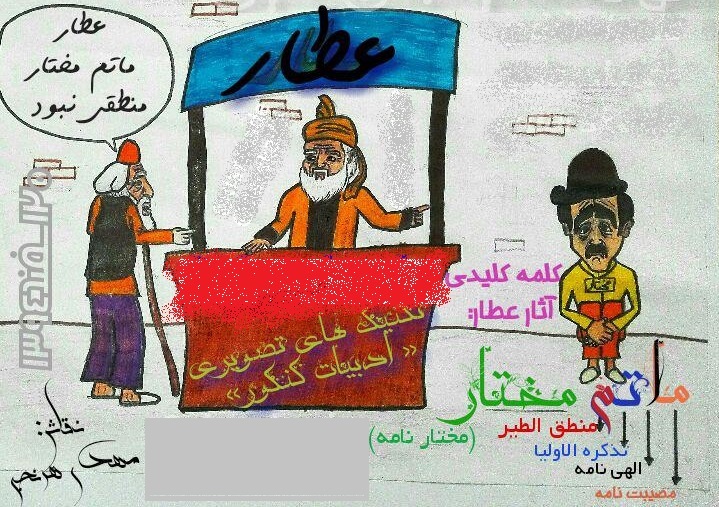 عطار
ماتم مختار
منطقی نبود
عطار
تکنیک های تصویری
«ادبیات کنکور»
کلمه کلیدی
آثار عطار:
مختار
ماتم مختار
(مختار نامه)
منطق الطیر
تذکره الاولیا
الهی نامه
مصیبت نامه
نقاش:
مهدی